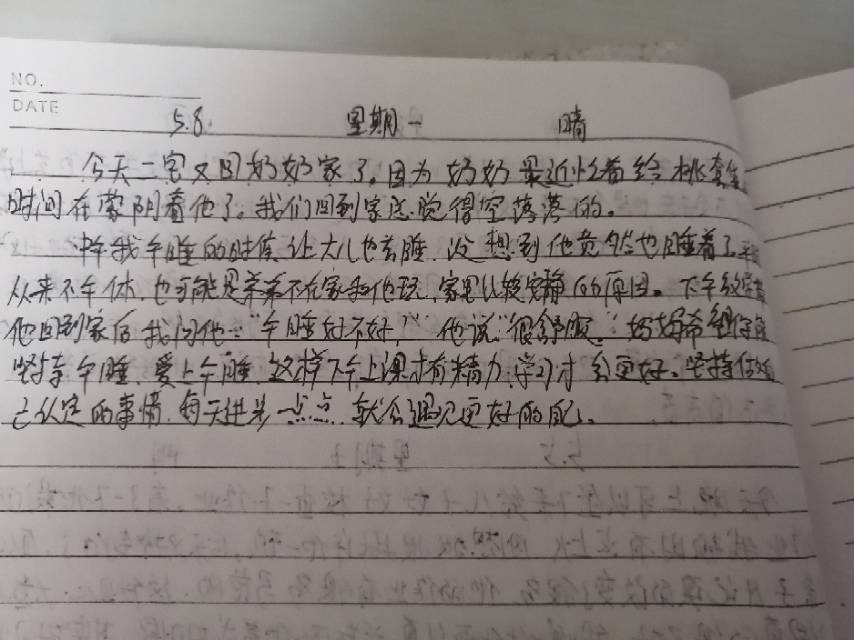 NO.
DATE
5.8. 星期一 晴
今天二宝又回奶奶家了。因为奶奶最近忙着给桃套
时间在蒙阴看他了。我们回到家总觉得空落落的。
中午我午睡的时候让大儿也去睡,没想到他竟然也睡着了
从来不午休,也可能是弟弟不在家和他玩,家里比较安静的原因。下午放学
他回到家后我问他:“午睡好不好?”他说“很舒服。”妈妈希望你能
坚持午睡,爱上午睡,这样下午上课才有精力,学习才会更好。坚持做
己认定的事情,每天进步一点点,就会遇见更好的自己。